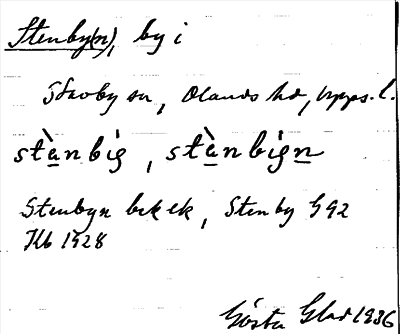 Stenby(n), by i
Skoby sn, Olands hd, Upps. l.
stànbig, stànbign
Stenbyn bek ek, Stenby G92
Kb 1928
Gösta Glad 1936